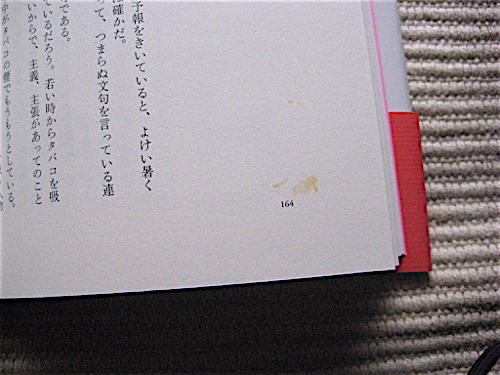 予報をきいていると、よけい暑く
は確かだ。
って、つまらぬ文句を言っている連
のである。
ているだろう。若い時からタバコを吸
いからで、主義、主張があってのこと
中がタバコの煙でもうもうとしている。
164